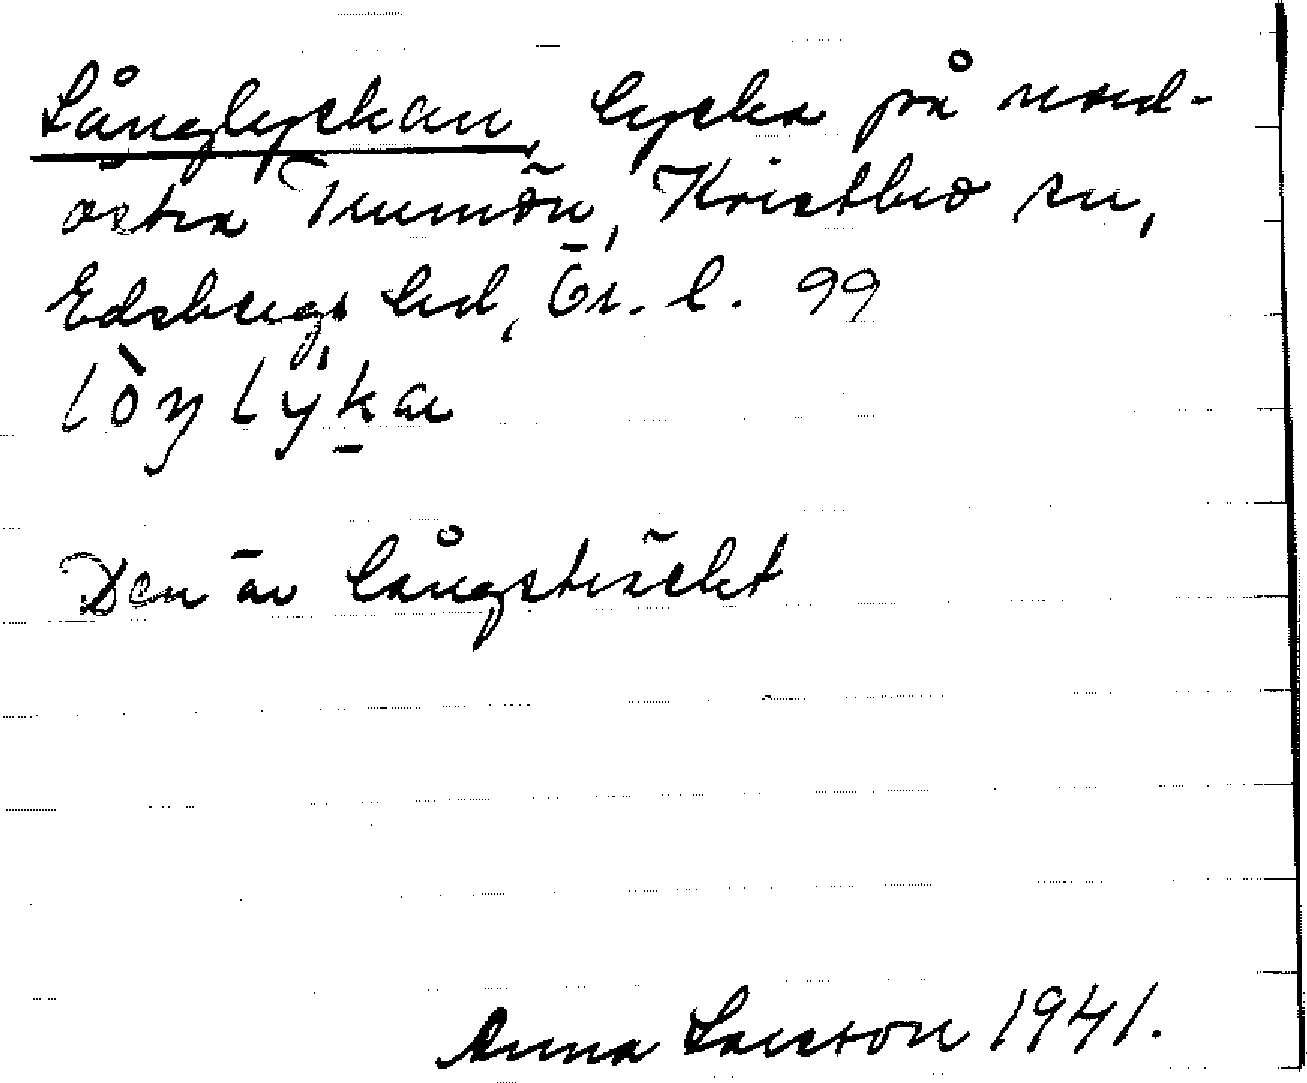 Långlyckan, lycka på nord-
östra Trumön, Kristbro sn,
Edsbergs hd, Ör. l. 99
lòŋlýka
Den är långsträckt
Anna Larsson 1941.